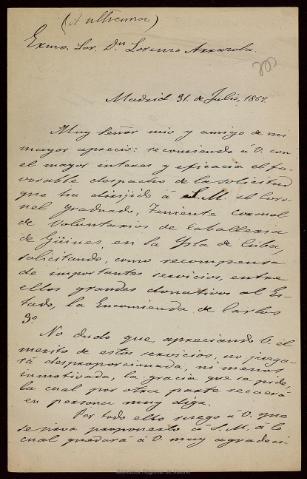 (A ultramar)
Excmo. Sor. Dn. Lorenzo Arrazola.
Madrid 31. de Julio, 186
Muy Señor mio y amigo de mi
mayor aprecio: recomiendo á V. con
el mayor interes y eficacia el fa-
vorable despacho de la solicitud
que ha dirijido á S. M. el Coro-
nel graduado, Teniente Coronel
de Voluntarios de Caballeria
de Güines, en la Ysla de Cuba,
solicitando, como recompensa
de importantes servicios, entre
ellos grandes donativos al Es-
tado, la Encomienda de Carlos
3º
No dudo que apreciando V. el
merito de estos servicios, no juzga-
rá desproporcionada, ni menos
inmotivada, la gracia que se pide,
la cual por otra parte recaerá
en persona muy digna.
Por todo ello ruego á V. que
se sirva proponerlo á S. M. á lo
cual quedará á V. muy agradeci